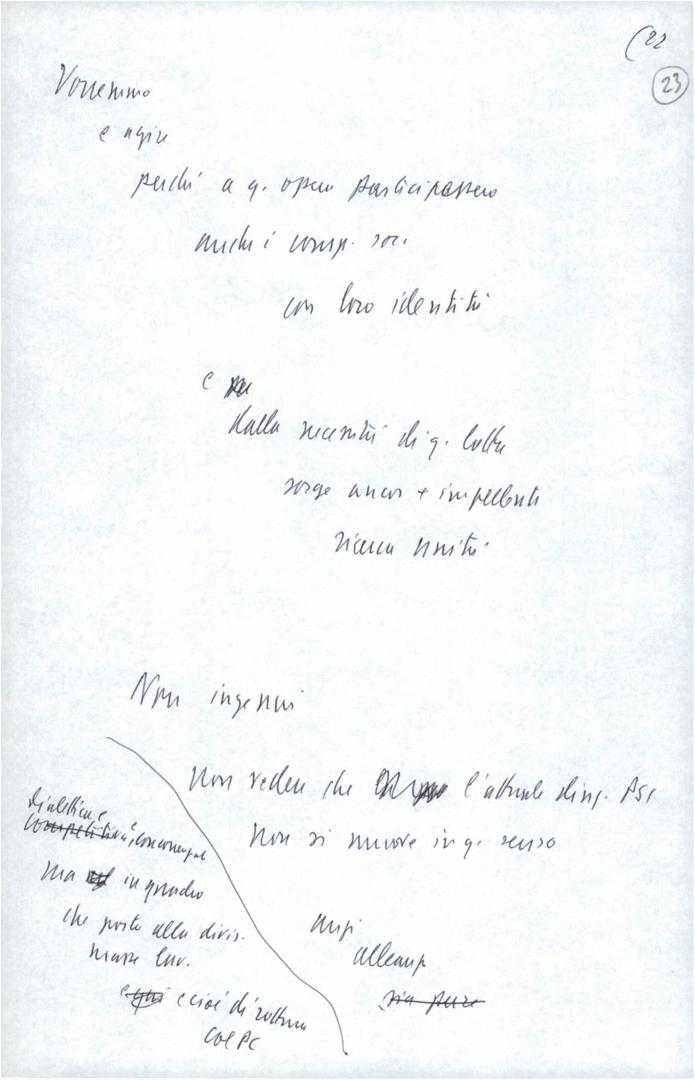 (22
23
Vorremmo
e agire
perché a q. opera partecipassero
anche i comp. soc.
con loro identità
e
dalla necessità di q. lotta
sorge ancor + impellente
ricerca unità
Non ingenui
non vedere che l'attuale dirig. PSI
non si muove in q. senso
anzi
alleanze
sia pure
dialettica e
competitività, concorrenza
ma in quadro
che porta alla divis.
masse lav.
e cioè di rottura
col PC